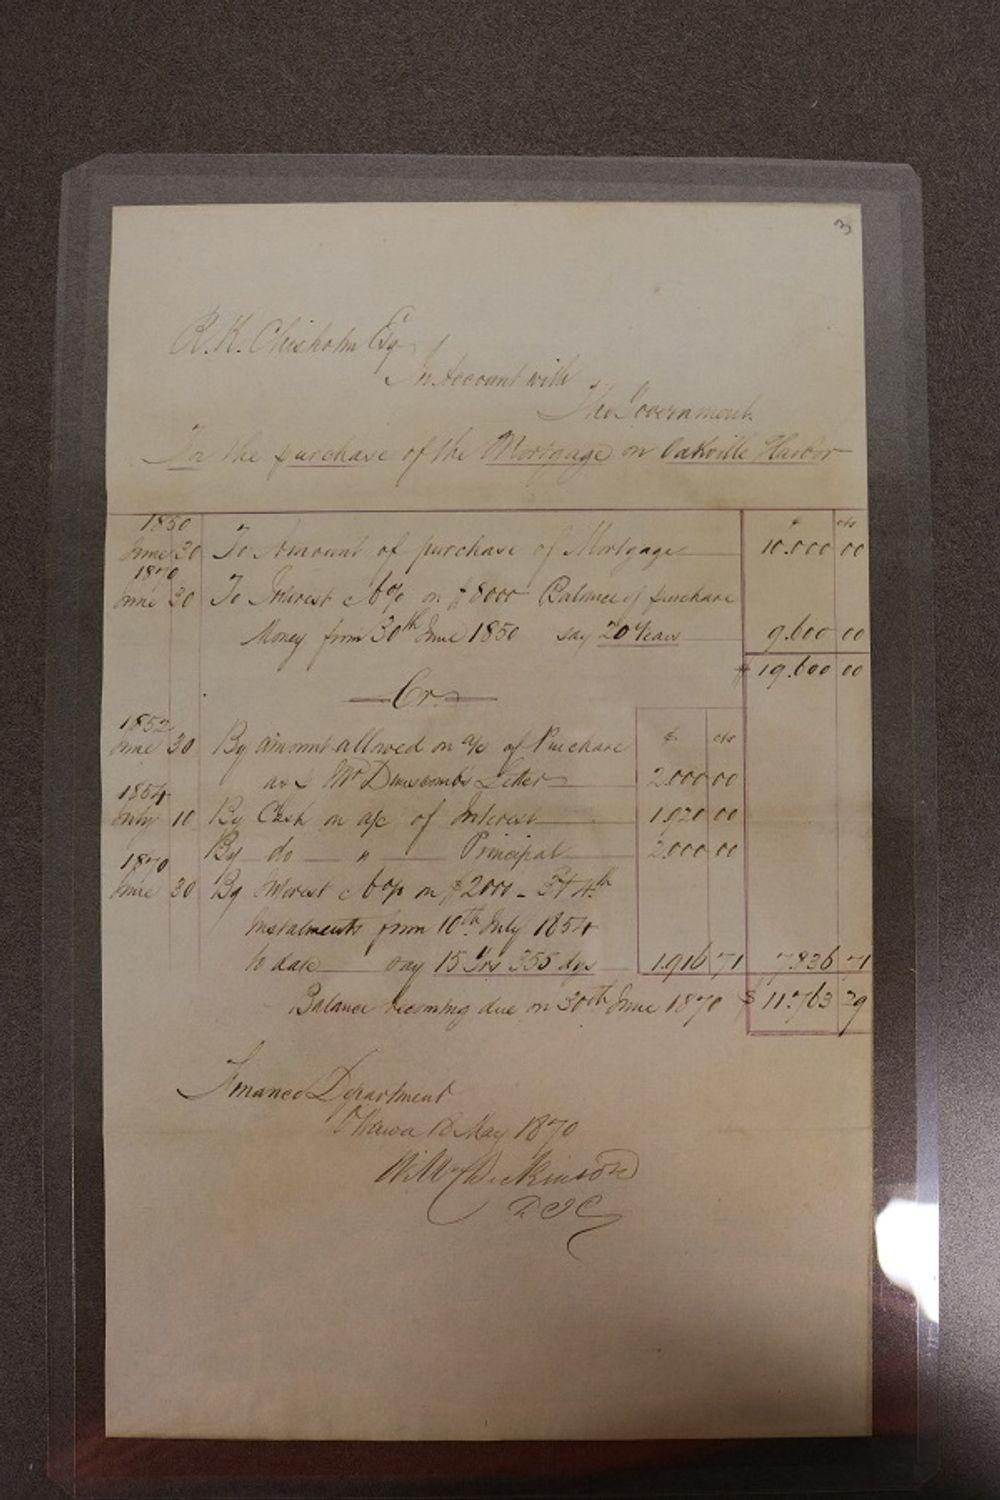 3
R. K. Chisholm Esq
In Account with
The Government
For the purchase of the Mortgage on Oakville Harbor
1850 $ cts
June 30 To Amount of purchase of Mortgage 10.000 00
1870
June 30 To Interest @ 6% on $8000 Balance of purchase
Money from 30th June 1850 say 20 Years 9.600 00
$ 19.600 00
Cr.
1852 $ cts
June 30 By amount allowed on a/c of Purchase
as Mr Letter 2.000 00
1854
July 10 By Cash on a/c of Interest 1.920 00
By do " Principal 2.000 00
1870
June 30 By Interest @ 6% on $2000 - 3 & 4th
Instalments from 10th July 1854
to date say 15 Yrs 355 dys 1.916 71 7.836 71
Balance becoming due on 30th June 1870 $ 11.763 29
Finance Department
Ottawa 18 May 1870
Dickinson